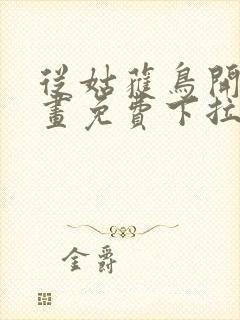 從姑獲鳥開
畫免費下拉
金爵